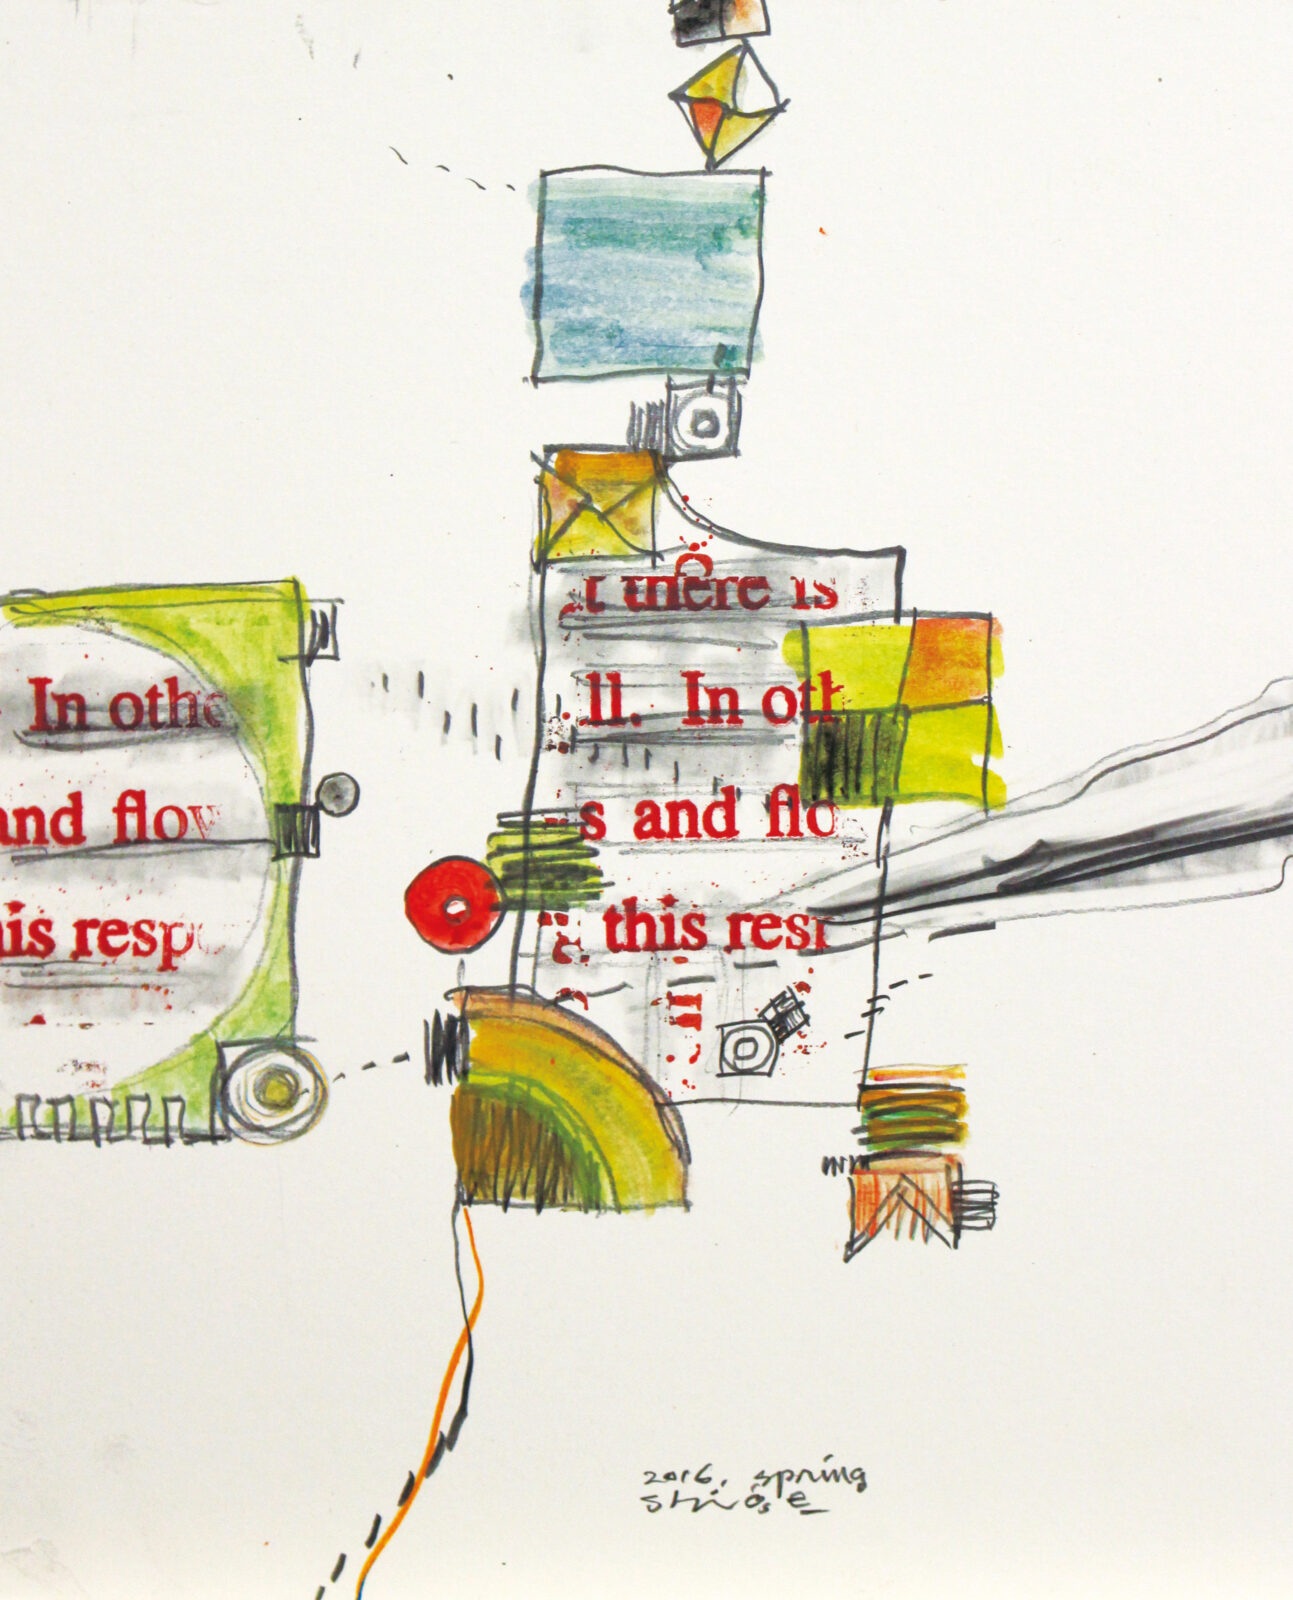 In othe
and flow
his resp
t there is
ll. In oth
s and flo
this resp
2016. spring